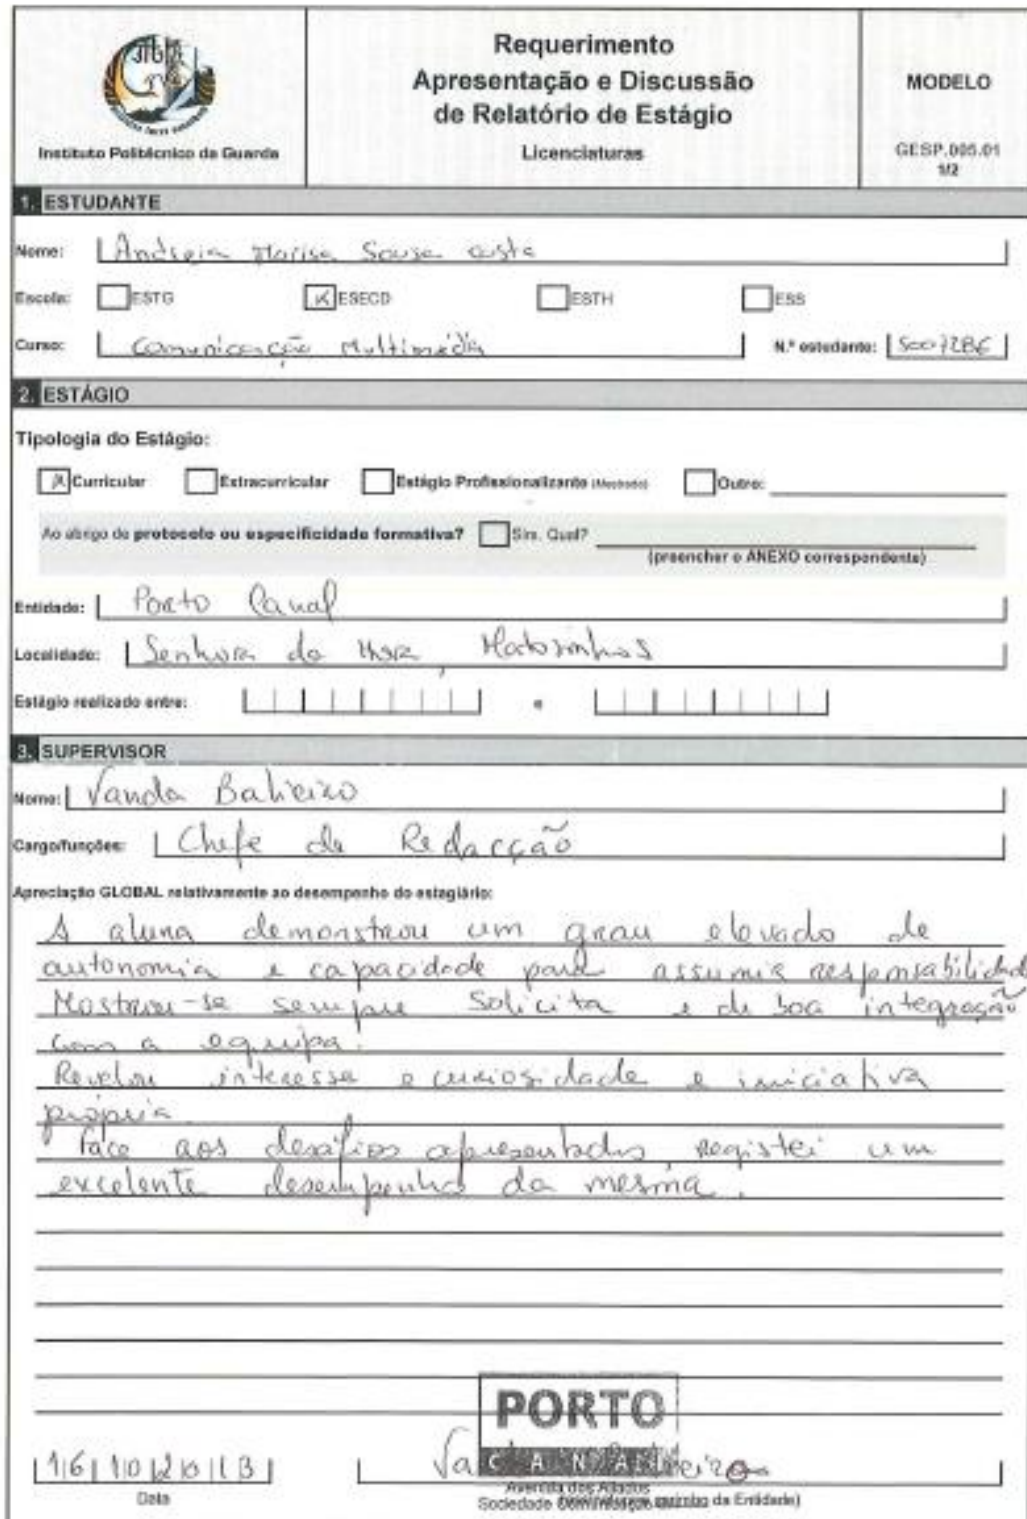 Requerimento
Apresentação e Discussão
de Relatório de Estágio
Licenciaturas
MODELO
GESP.005.01
1/2
Instituto Politécnico da Guarda
1. ESTUDANTE
Nome: Andreia Marisa Sousa Costa
Escola: ESTG ESECD ESTH ESS
Curso: Comunicação Multimédia N.º estudante:
2. ESTÁGIO
Tipologia do Estágio:
Curricular Extracurricular Estágio Profissionalizante (Mestrado) Outro:
Ao abrigo de protocolo ou especificidade formativa? Sim. Qual?
(preencher o ANEXO correspondente)
Entidade: Porto Canal
Localidade: Senhora da Hora, Matosinhos
Estágio realizado entre: e
3. SUPERVISOR
Nome: Vanda Balieiro
Cargo/funções: Chefe de Redacção
Apreciação GLOBAL relativamente ao desempenho do estagiário:
A aluna demonstrou um grau elevado de
autonomia e capacidade para assumir responsabilidade
Mostrou-se sempre solicita e de boa integração
com a equipa.
Revelou interesse e curiosidade e iniciativa
própria.
Face aos desafios apresentados, registei um
excelente desempenho da mesma.
PORTO
CANAL
Data
Avenida dos Aliados
Sociedade da Entidade)